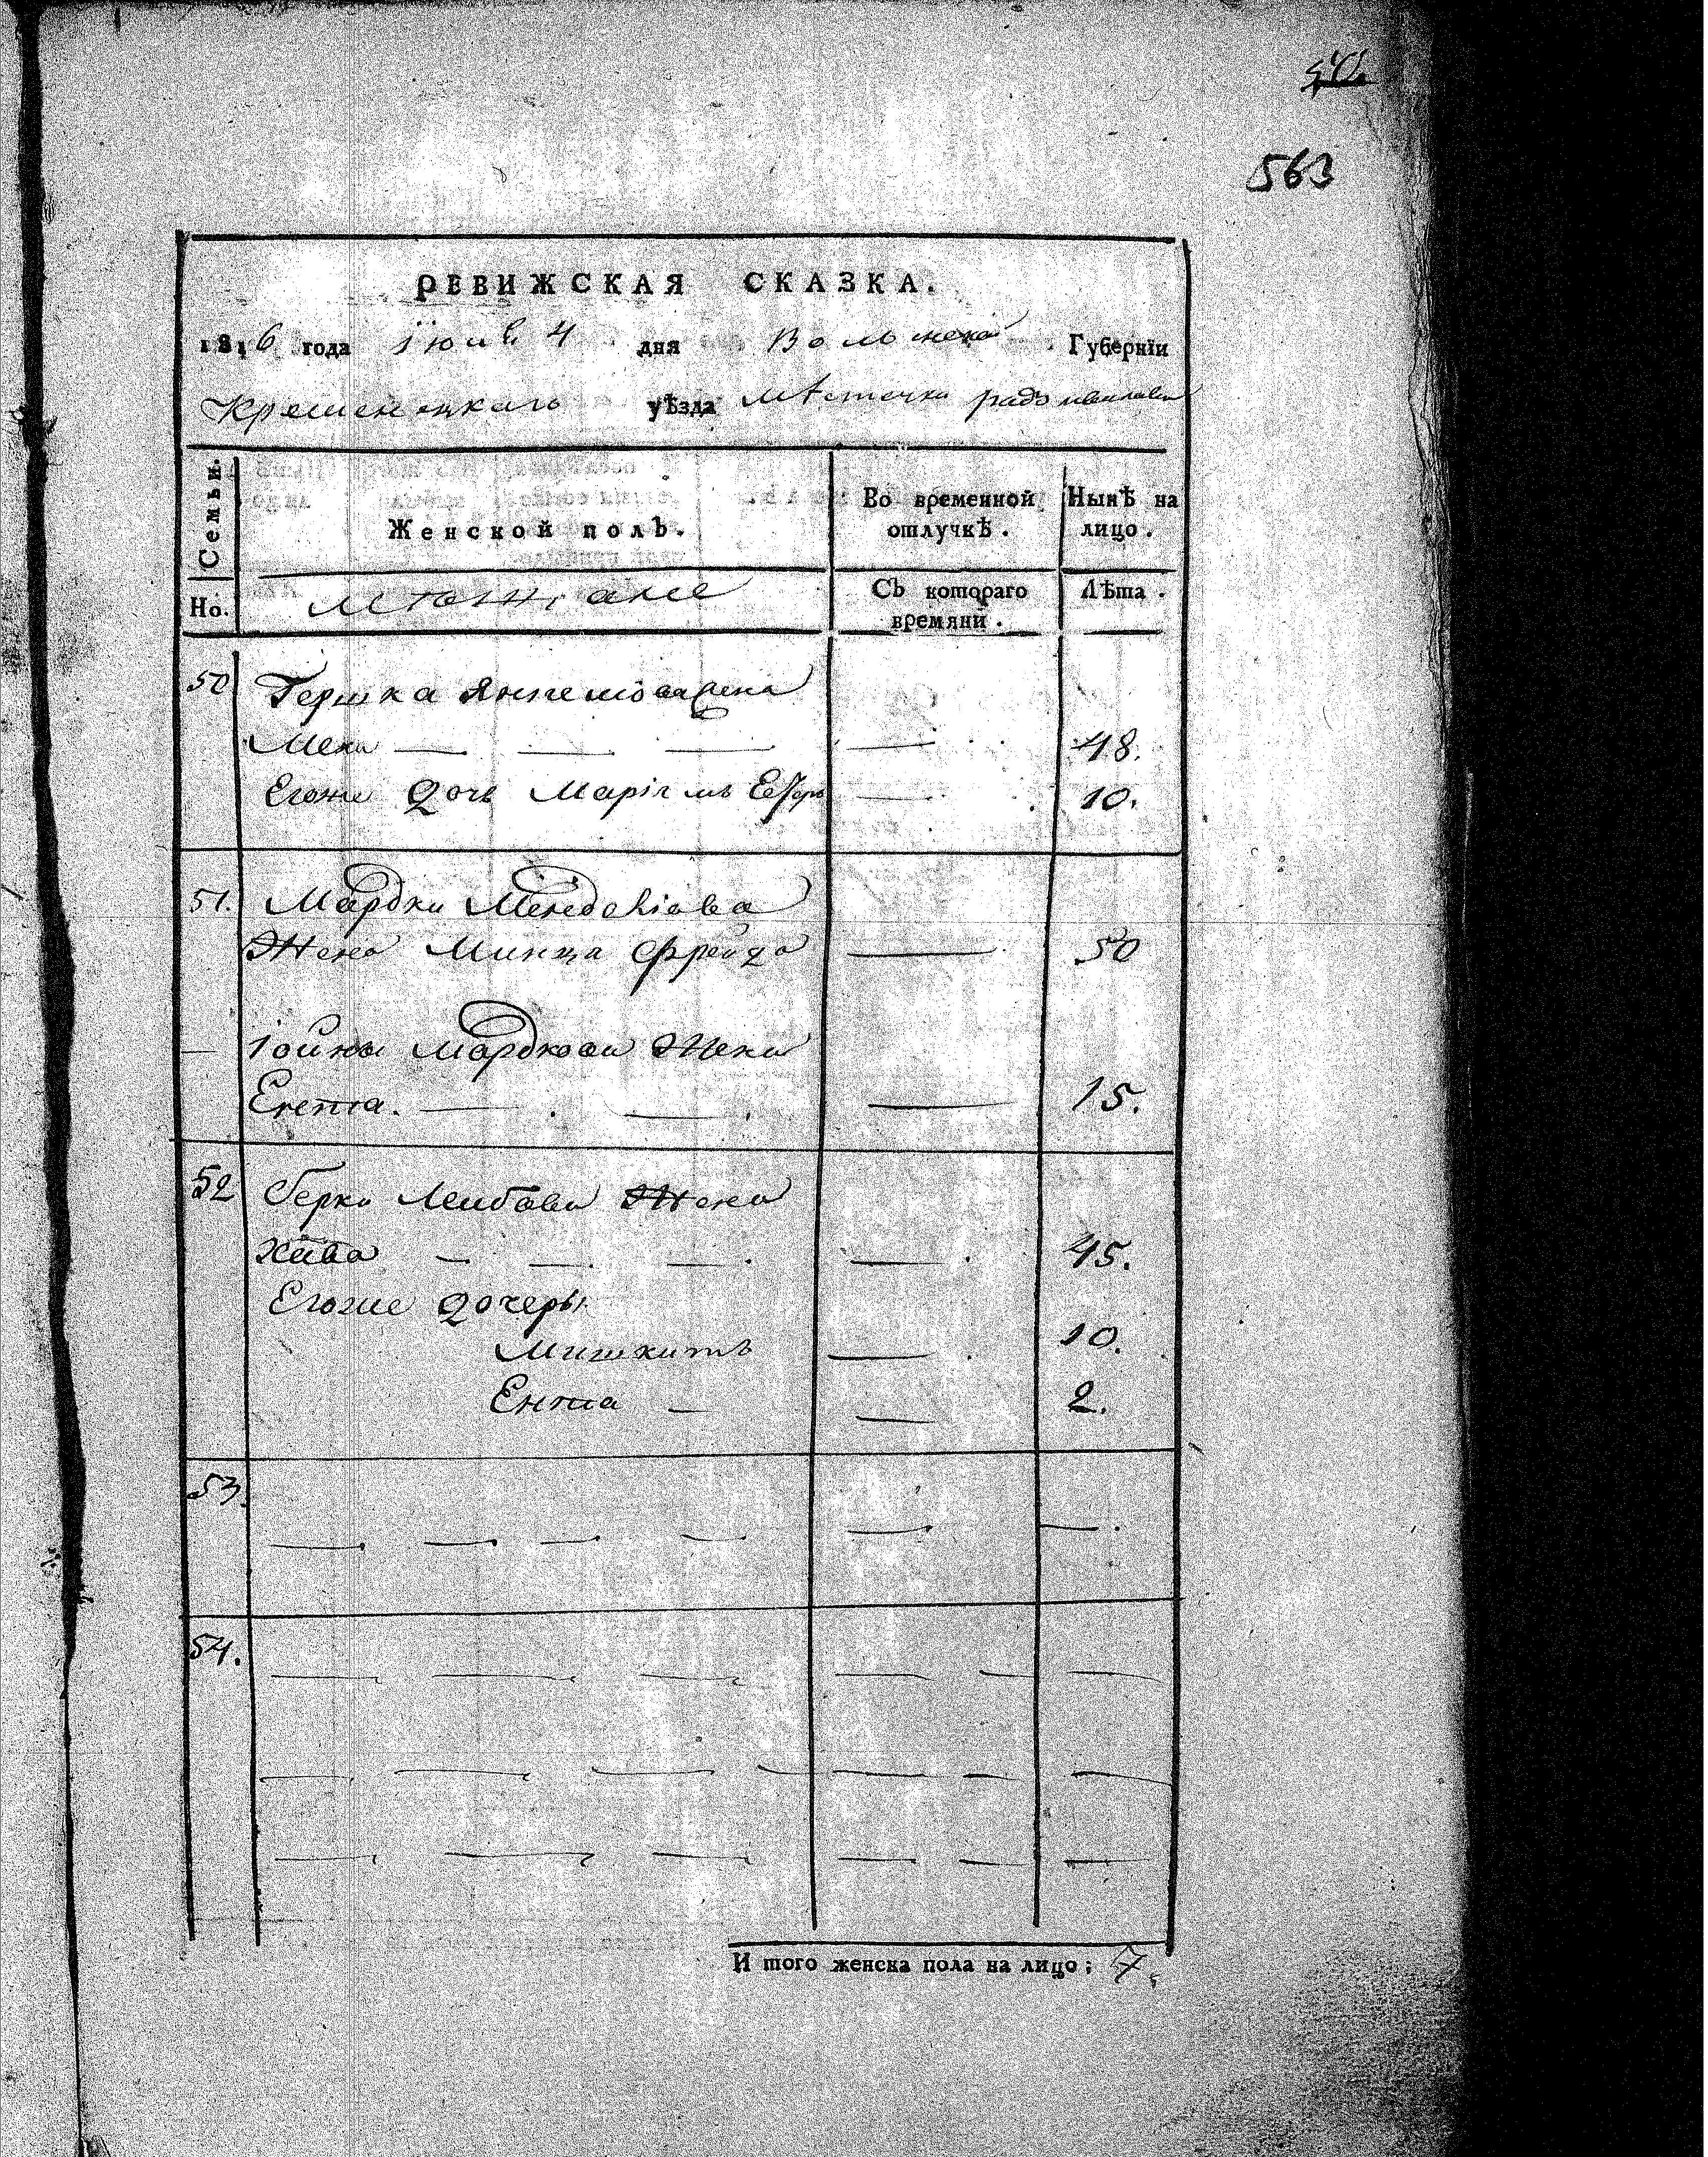 563
РЕВИЖСКАЯ СКАЗКА.
1816 года Iюня 4 дня Волынской Губернїи
Кременецкаго уѣзда Мѣстечка радзивилова
Семьи. Женской полъ. Во временной отлучкѣ. Нынѣ на лицо.
Но. Мѣщане Съ котораго времяни. Лѣта.
50 Гершка жена
— — — — 48.
Егоже Дочь Марiямъ Естеръ — 10.
51. Мардки Менделiова
Жена Минця Фрейда — 50
— Iойны Мардкова Жена
Ента. — — — 15.
52 Берки Лейбова Жена
Хава — — — — 45.
Егоже Дочеры
— 10.
Ента — — 2.
53. — — — — — —
54. — — — — — —
— — — — — — —
— — — — — —
И того женска пола на лицо; 7.